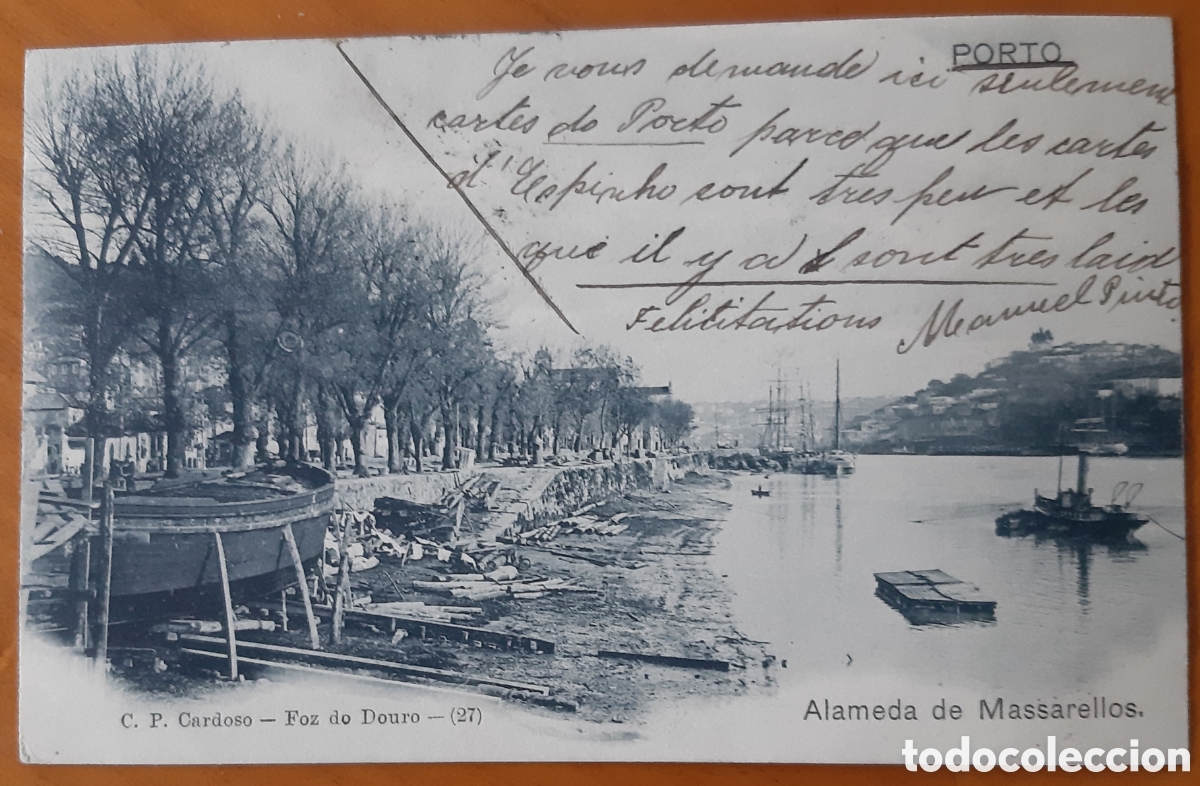 PORTO
Je vous demande ici seulement
cartes do Porto parce que les cartes
d'Espinho sont tres peu et les
que il y a sont tres laid
Felicitations Manuel Pinto
C. P. Cardoso — Foz do Douro — (27)
Alameda de Massarellos.
todocoleccion